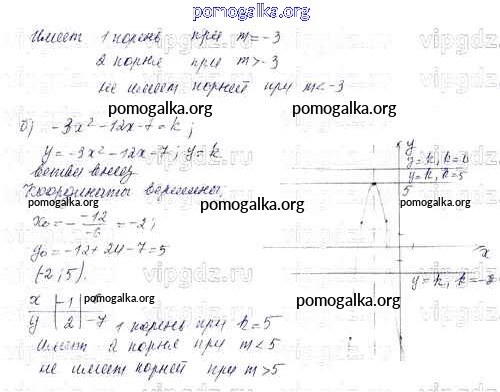 pomogalka.org
Имеет 1 корень при m=-3
2 корня при m>-3
не имеет корней при m<-3
pomogalka.org pomogalka.org
б) -3x²-12x-7=k;
y=-3x²-12x-7; y=k
ветви вниз
Координаты вершины;
pomogalka.org pomogalka.org
x₀=- -12/-6 =-2;
y₀=-12+24-7=5
(-2;5).
x | -1 | 0
y | 2 | -7
pomogalka.org pomogalka.org
1 корень при k=5
Имеет 2 корня при m<5
не имеет корней при m>5
y
y=k, k=6
y=k, k=5
5
x
y=k, k=-2
vipgdz.ru